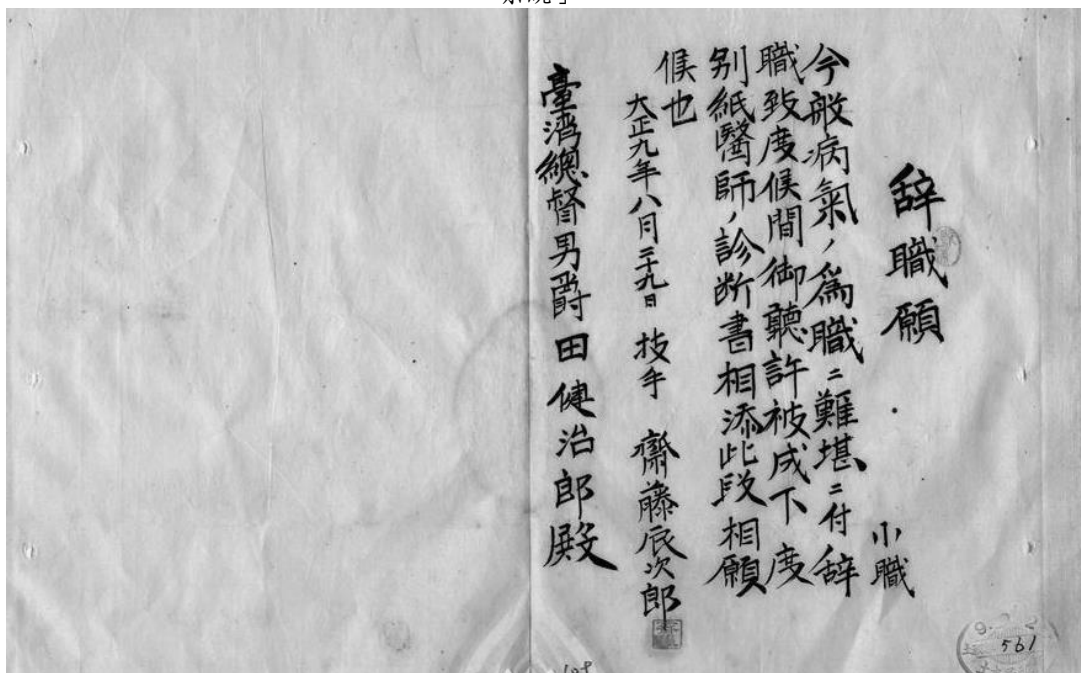 辞職願
小職
今般病氣ノ為職ニ難堪ニ付辞
職致度候間御聽許被成下度
別紙醫師ノ診断書相添此段相願
候也
大正九年八月二十九日 技手 齋藤辰次郎
臺灣總督男爵田健治郎殿
561